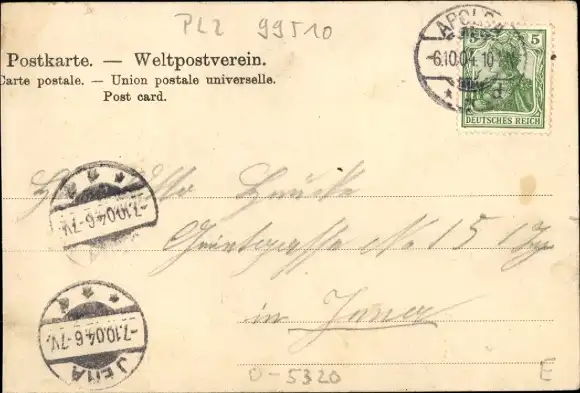 PLZ 99510
APOLDA
-6.10.04.10
5 5
DEUTSCHES REICH
Postkarte. — Weltpostverein.
Carte postale. — Union postale universelle.
Post card.
-7.10.04.6-7V.
No 15
in Jena
-7.10.04.6-7V.
JENA
O-5320
E